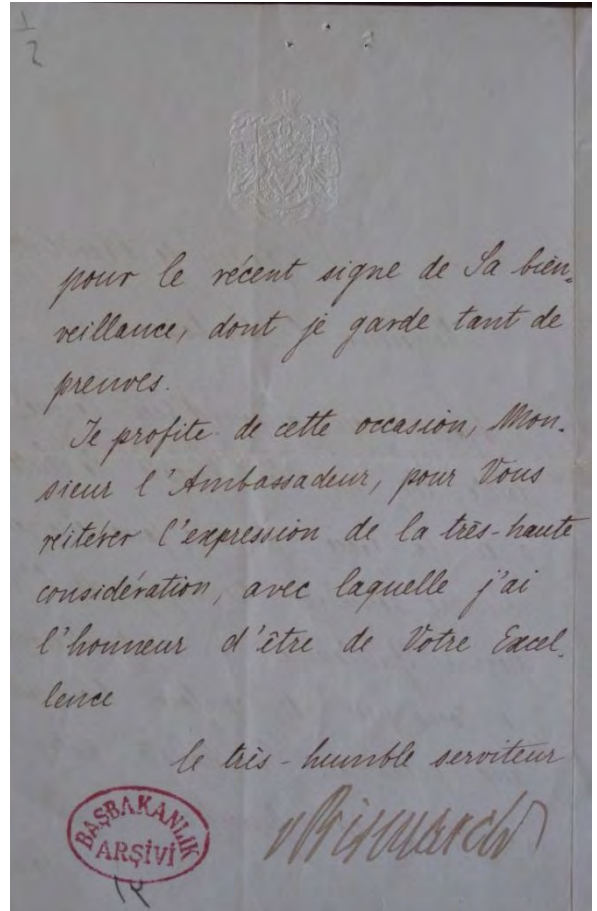 1
2
pour le récent signe de Sa bien-
veillance, dont je garde tant de
preuves.
Je profite de cette occasion, Mon-
sieur l'Ambassadeur, pour Vous
réitérer l'expression de la très-haute
considération, avec laquelle j'ai
l'honneur d'être de Votre Excel-
lence
le très-humble serviteur
v Bismarck
BAŞBAKANLIK
ARŞİVİ